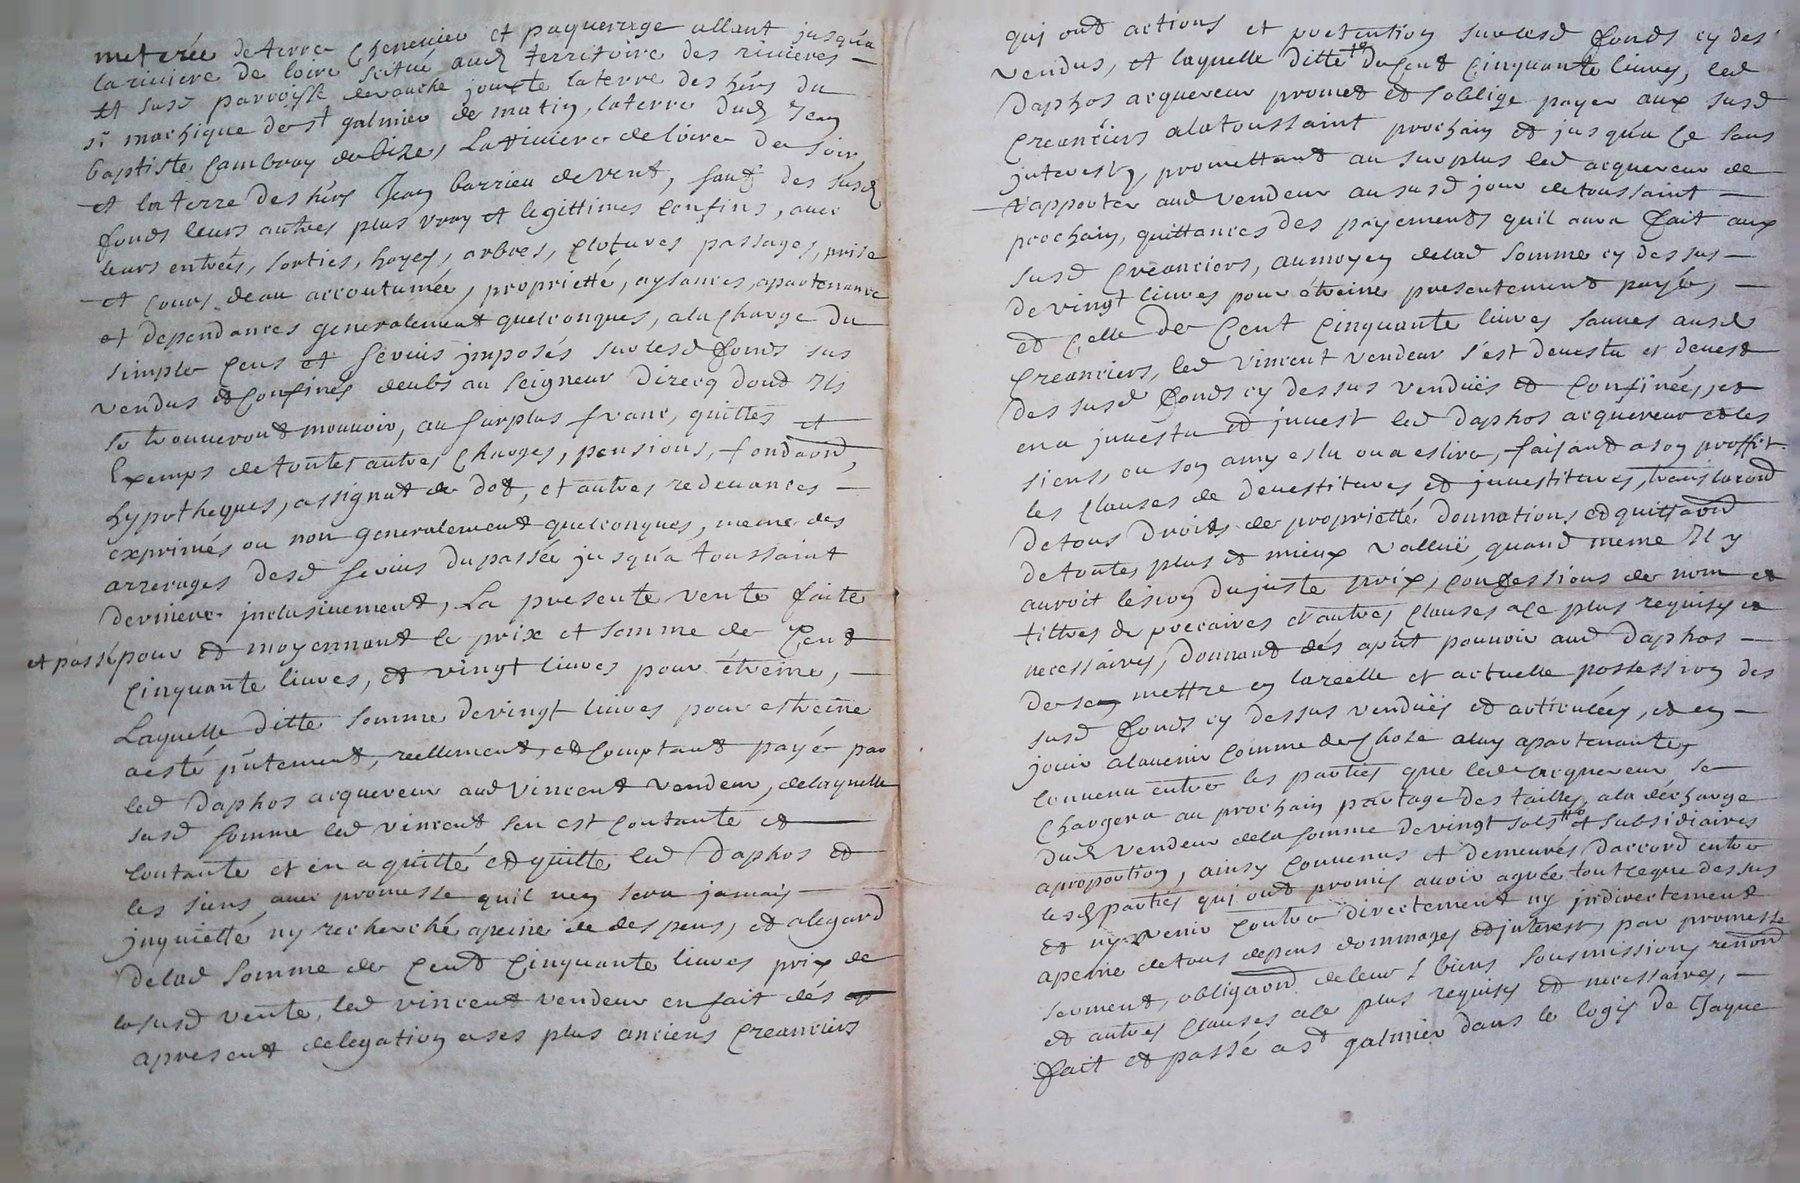 meterée de terre Chenevier et paquerage allant jusqu'a
la riviere de loire scitué aud territoire des rivieres
et susd parroisse jouxte la terre des hérs du
sr machique de st galmier de matin, la terre dud Jean
baptiste Cambray de bize, La riviere de loire de soir,
et la terre des hérs Jean barrieu de vent, sauf des susd
fonds leurs autres plus vray et legittimes confins, avec
leurs entrées, sorties, hayes, arbres, clotures passages, prise
et cours deau accoutumée, proprietté, aysances, apartenances
et dependances generalement quelconques, ala charge du
simple cens et servis imposés sur lesd fonds sus
vendus et confinés deubs au seigneur direcq dont ils
se trouveront mouvoir, au surplus franc, quittes et
Exemps de toutes autres charges, pensions, fondaons,
hypotheques, assignat de dot, et autres redevances
exprimés ou non generalement quelconques, meme des
arrerages desd servis du passée jusqu'a toussaint
derniere inclusivement, La presente vente faite
et passé pour et moyennant le prix et somme de Cent
cinquante livres, et vingt livres pour étreine,
Laquelle ditte somme de vingt livres pour estreine
a esté pñtement, reellement, et comptant payée par
led Daphos acquereur aud Vincent vendeur, delaquelle
susd somme led vincent sen est contanté et
contante et en a quitté et quitte led Daphos et
les siens avec promesse quil ney sera jamais
inquietté ny recherché apeine de despens, et alegard
delad somme de Cent Cinquante livres prix de
la susd vente, led vincent vendeur en fait dés
apresent delegation a ses plus anciens Creanciers
qui ont actions et pretention sur lesd fonds cy des
vendus, et laquelle ditte se de Cent Cinquante livres, led
Daphos acquereur promet et soblige payer aux susd
Creanciers ala toussaint prochain et jusqu'a Ce sans
interests, promettant au surplus led acquereur de
rapporter aud vendeur au susd jour de toussaint
prochain, quittances des payements quil aura fait aux
susd Creanciers, au moyen de lad somme cy dessus
de vingt livres pour étreine presentement payée,
et Celle de Cent Cinquante livres sauves ausd
Creanciers, led Vincent vendeur s'est devestu et devest
des susd fonds cy dessus venduës et confinées, et
en a investu et invest led Daphos acquereur et les
siens, ou son amy eslu ou a eslire, faisant a son proffit
les clauses de devestitures et investitures, translaond
de tous droits de proprietté donnations et quittaond
de toutes plus et mieux valluë, quand meme Il y
auroit lesion du juste prix, confessions de nom et
tiltres de precaires et autres clauses ale plus requises et
necessaires, donnant dés apñt pouvoir aud Daphos
de sen mettre en la reelle et actuelle possession des
susd fonds cy dessus venduës et articulées, et en
jouir alavenir comme de Choze aluy apartenante,
Convenu entre les parties que led acquereur se
Chargera au prochain partage des tailles, ala decharge
dud vendeur dela somme de vingt sols tte et subsidiaires
aproportion, ainsy Convenus et demeurés daccord entre
lesd parties qui ont promis avoir agrée tout ceque dessus
et ny venir contre directement ny indirectement
apeine de tous depens dommages et interests par promesse
serment, obligaond de leurs biens sousmissions renond
et autres clauses ale plus requises et necessaires,
fait et passé a st galmier dans le logis de Jaque